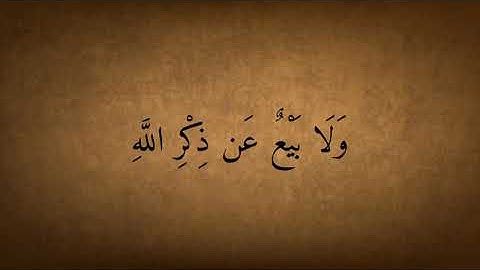 وَلَا بَيْعٌ عَن ذِكْرِ اللَّهِ